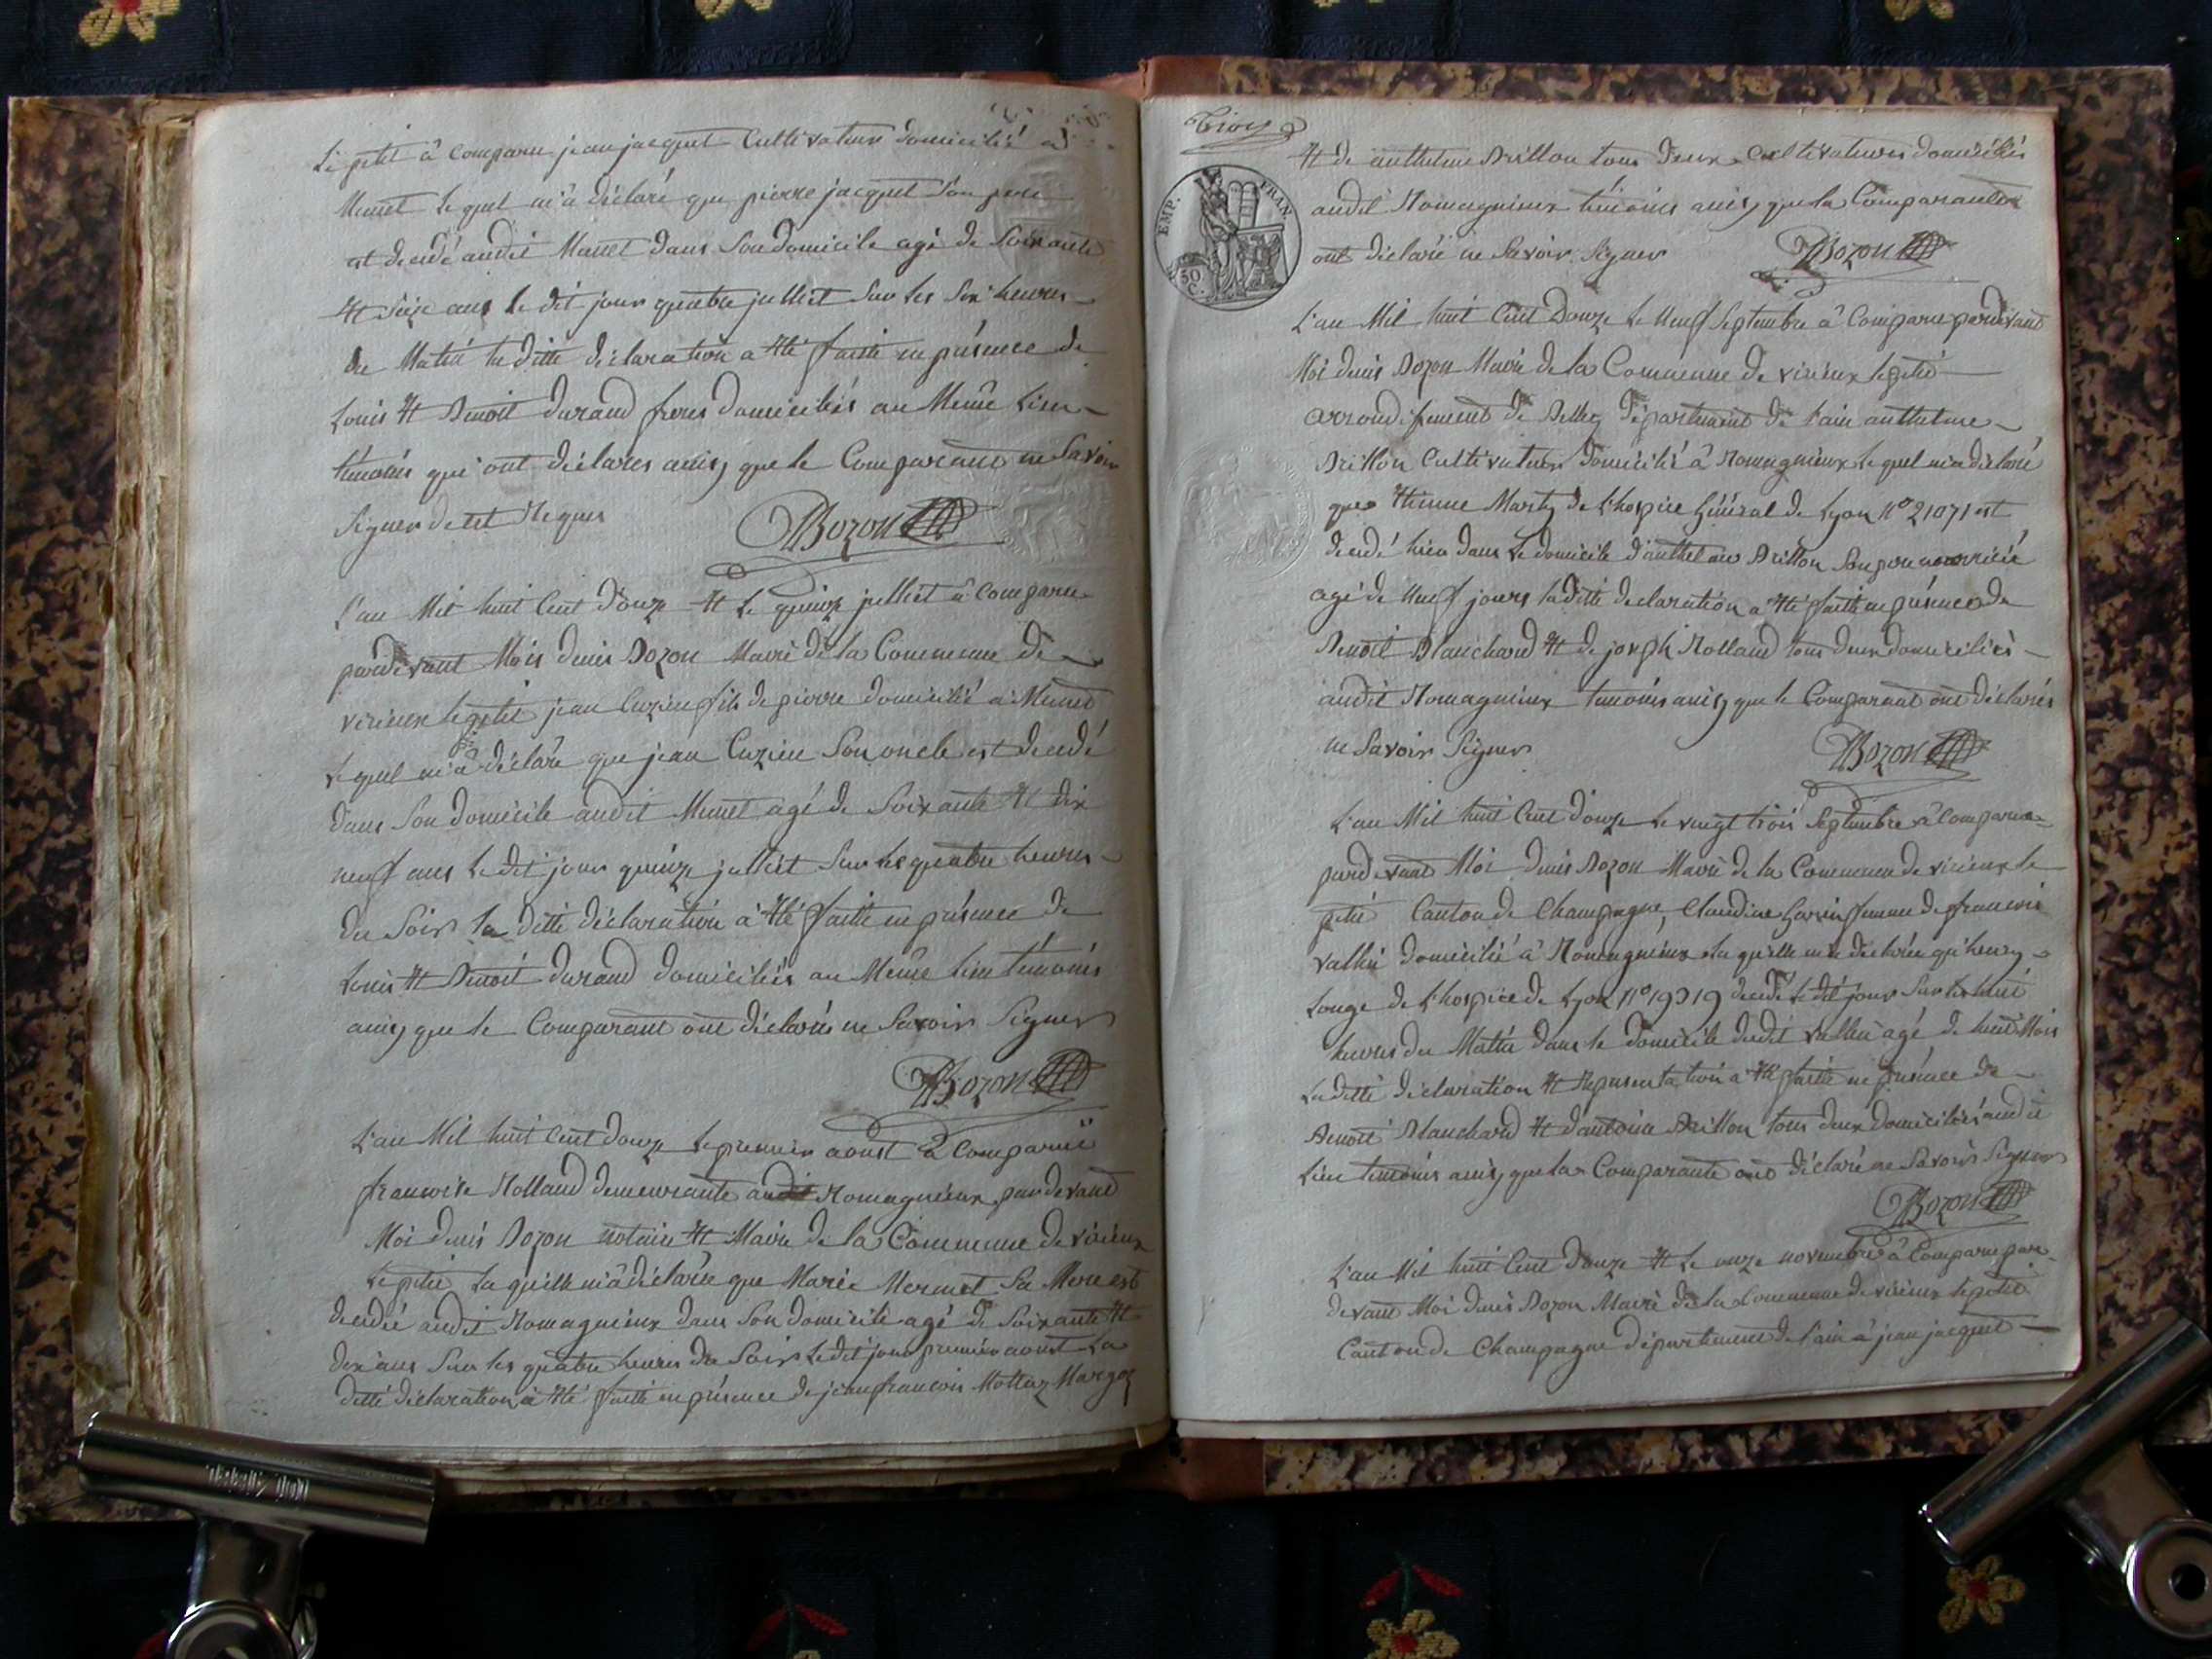 Le petit à comparu jean jacquet Cultivateur domicilié à
Munet le quel m'a déclaré que pierre jacquet son pere
est decedé audit Munet dans son domicile agé de soixante
et seize ans le dit jour quatre julliet sur les six heures
du Matin la ditte déclaration a été faitte en présence de
Louis et Benoit durand freres domiciliés au Même Lieu
témoins qui ont déclarés ainsy que le Comparant ne Savoir
Signer de cet Requis
DBozon
L'an Mil huit Cent douze et le quinze julliet a comparu
pardevant Moi denis Bozon Maire de la Commune de
virieux le petit jean Cuzien fils de pierre domicilié a Munet
Lequel m'a déclaré que jean Cuzien Son oncle est decedé
dans Son domicile audit Munet agé de Soixante et dix
neuf ans le dit jour quinze julliet Sur les quatre heures
du Soir la ditte déclaration à été faitte en présence de
Louis et Benoit durand domiciliés au Même lieu témoins
ainsy que le Comparant ont déclarés ne Savoir Signer
DBozon
L'an Mil huit Cent douze le premier aoust à Comparuë
francoise Rolland demeurante audit Romagnieux pardevant
Moi denis Bozon notaire et Maire de la Commune de virieux
Le petit La quelle m'à déclarée que Marie Mermet Sa Mere est
decedée audit Romagnieux dans Son domicile agé de Soixante et
dix ans Sur les quatre heures du Soir le dit jour premier aoust La
ditte déclaration à été faitte en présence de jean francois Mottaz Margoz
et de anthelme Brillon tous deux Cultivateurs domiciliés
audit Romagnieux témoins ainsy que la Comparante
ont déclaré ne Savoir Signer DBozon
EMP. FRAN.
50 C.
L'an Mil huit Cent Douze le Neuf Septembre à Comparu pardevant
Moi denis Bozon Maire de la Commune de virieux le petit
arrondissement de Belley département de l'ain anthelme
Brillon Cultivateur domicilié à Romagnieux le quel m'a déclaré
que Etienne Marty de L'hospice Général de Lyon N° 21071 est
decedé hier dans le domicile d'anthelme Brillon Son pere nourricié
agé de Neuf jours la ditte declaration a été faitte en présence de
Benoit Blanchard et de joseph Rolland tous deux domiciliés
audit Romagnieux témoins ainsy que le Comparant ont déclarés
ne Savoir Signer DBozon
L'an Mil huit Cent douze le vingt trois Septembre à Comparue
pardevant Moi denis Bozon Maire de la Commune de virieux le
petit Canton de Champagne, Claudine femme de francois
vallin domicilié à Romagnieux la quelle m'a déclarée qu'henry
Louge de L'hospice de Lyon N° 19319 decedé le dit jour Sur les huit
heures du Matin dans le domicile dudit vallin agé de huit Mois
La ditte déclaration et Représentation à été faitte en présence de
Benoit Blanchard et d'antoine Brillon tous deux domiciliés audit
Lieu témoins ainsy que la Comparante ont déclaré ne Savoir Signer
DBozon
L'an Mil huit Cent Douze et le onze novembre à Comparu par
devant Moi denis Bozon Maire de la Commune de virieux le petit
Canton de Champagne département de l'ain à jean jacquet